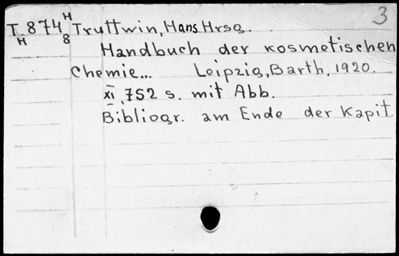 3
T.874 H Truttwin, Hans.Hrsg.
H 8 Handbuch der kosmetischen
Chemie... Leipzig, Barth, 1920.
XI, 752 s. mit Abb.
Bibliogr. am Ende der Kapit